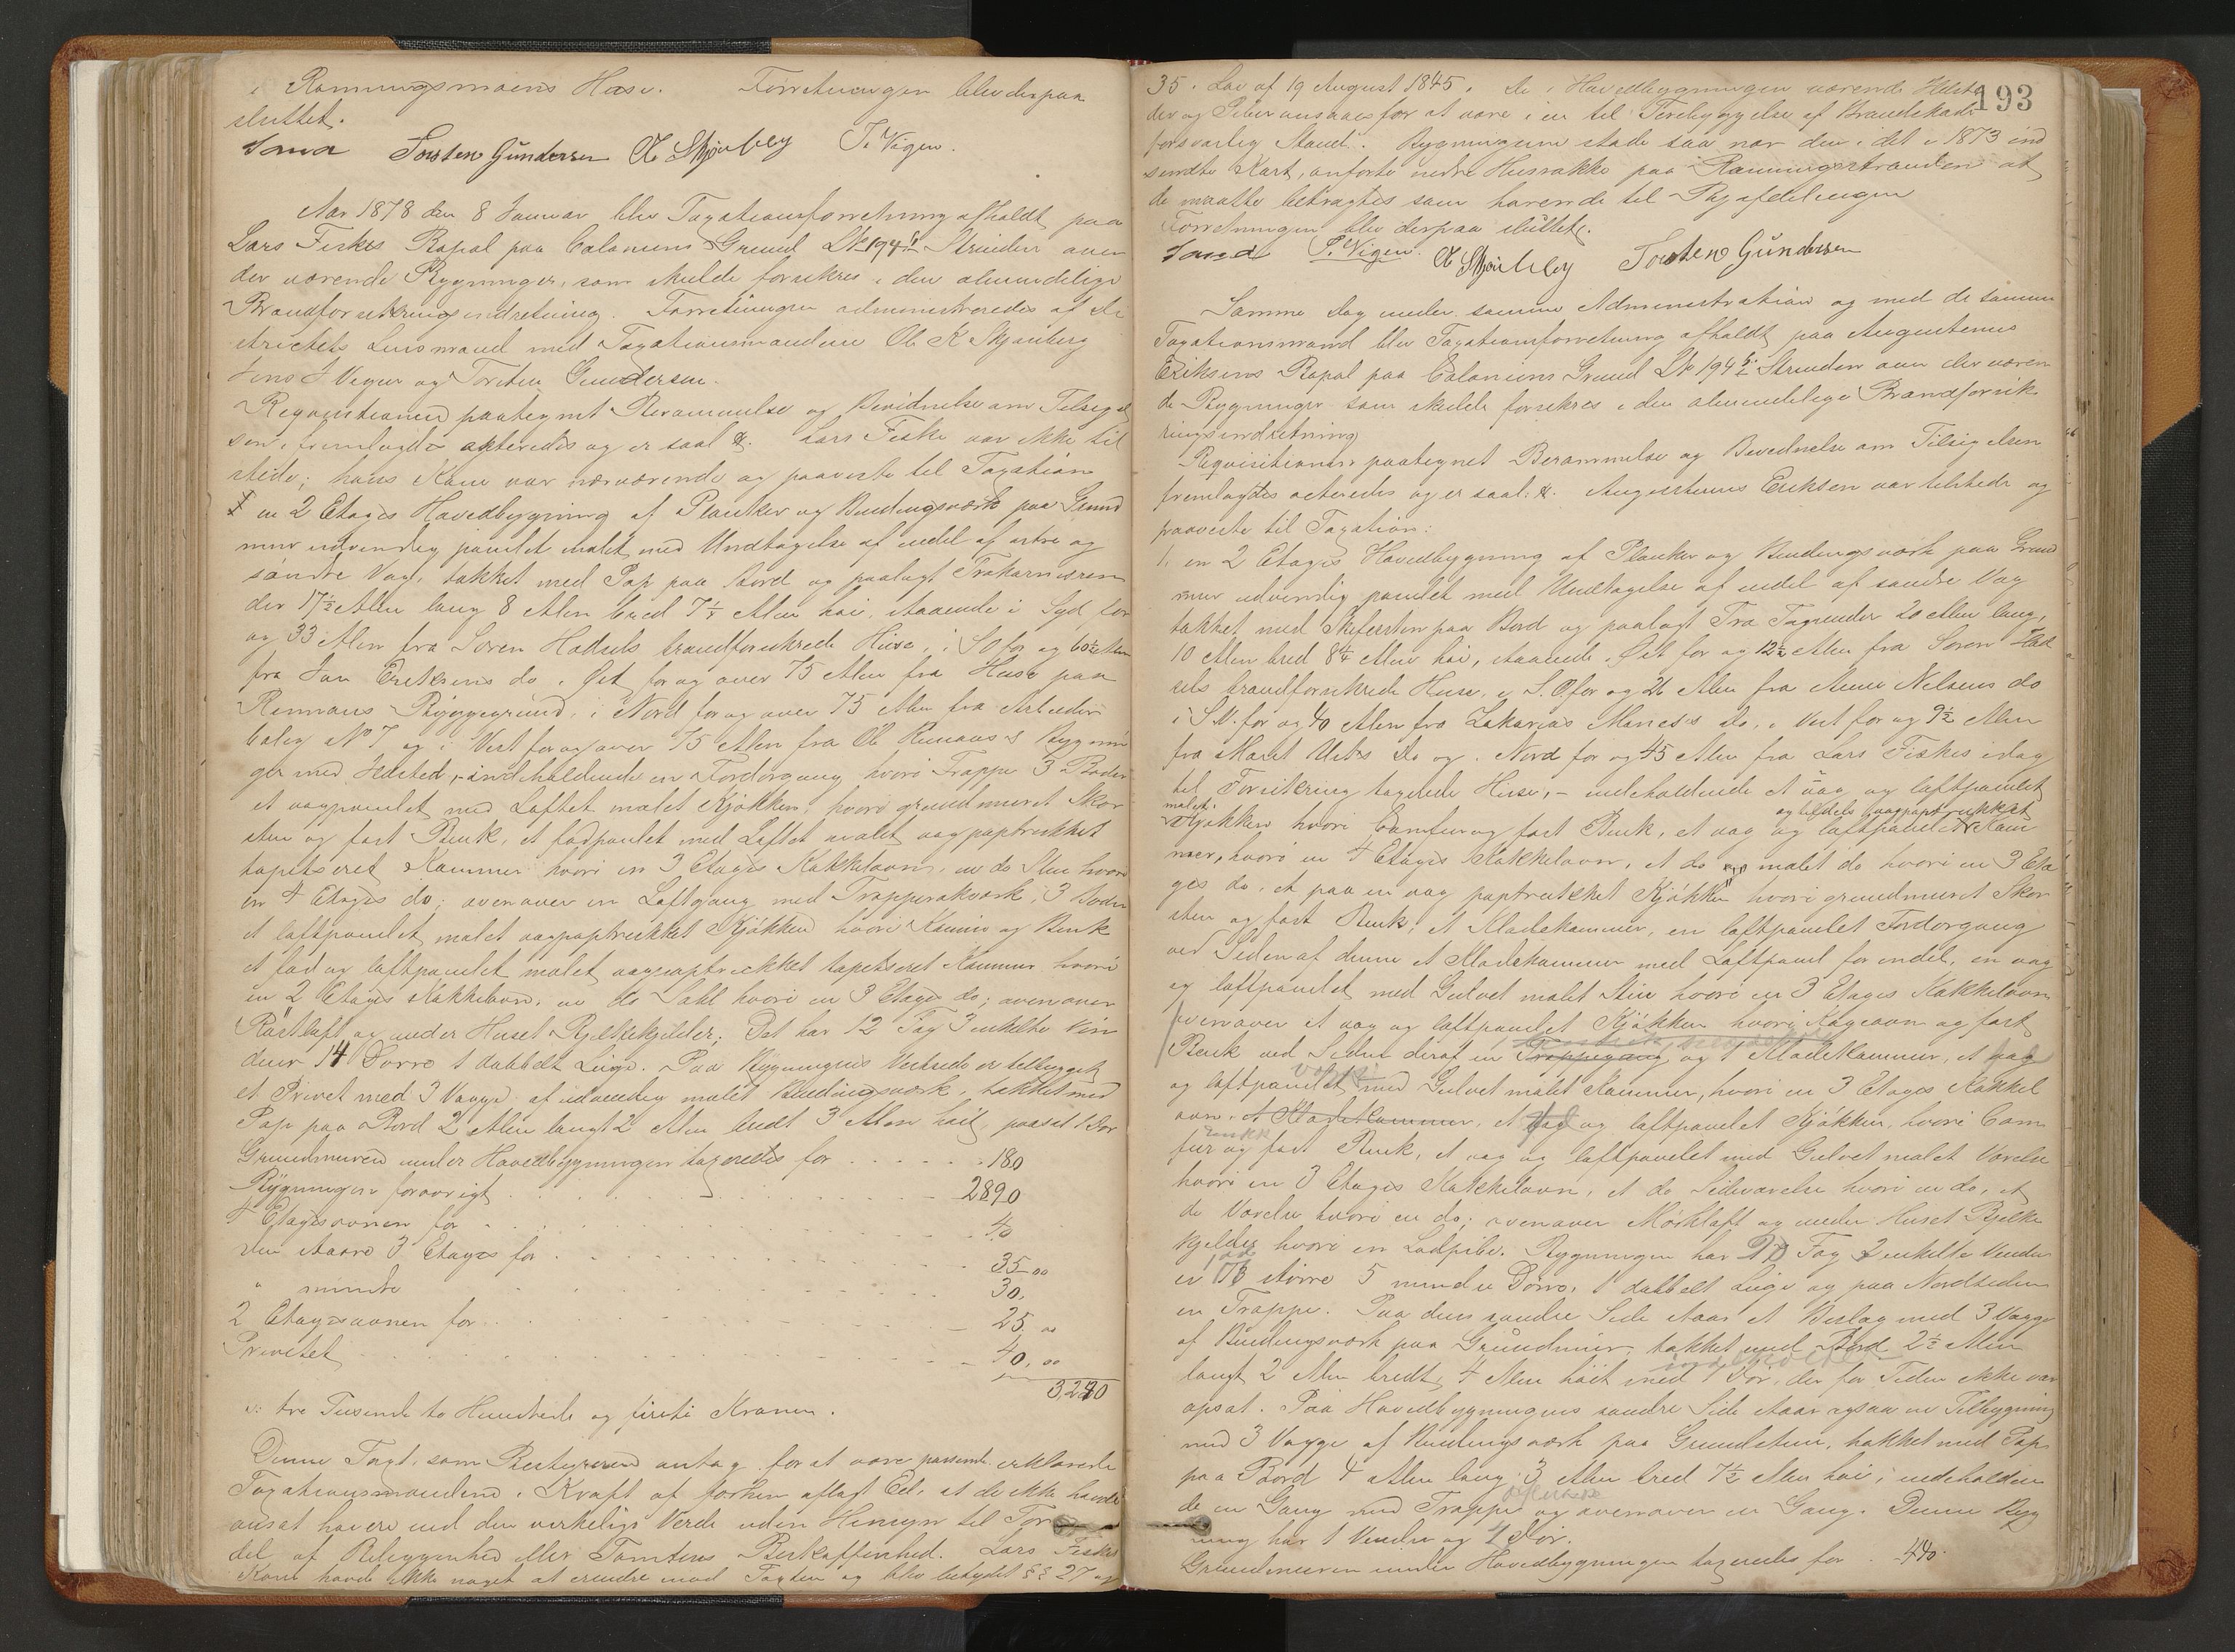 i Ranningsmoens Huse. Forretningen blev derpaa
sluttet.
Sand Torsten Gundersen O K Skjønberg J. Vigen.
Aar 1878 den 8 Januar blev Taxationsforretning afholdt paa
Lars Fiskes Bopæl paa Coloniens Grund L№ 194 Strinden over
der værende Bygninger, som skulde forsikres i den almindelige
Brandforsikringsindretning. Forretningen administreredes af Di
strictets Lensmand med Taxationsmændene Ole K Skjønberg
Jens J Vigen og Torsten Gundersen.
Reqvisitionen paategnet Berammelse og Bevidnelse om Tilsigel
sen, fremlagdes akteredes og er saal. Lars Fiske var ikke til
stede; hans Kone var nærværende og paaviste til Taxation
1 en 2 Etages Hovedbygning af Planker og Bindingsværk paa Grund
mur udvendig panelet malet med Undtagelse af endel af østre og
søndre Væg, tækket med Pap paa Bord og paalagt
der 17½ Alen lang 8 Alen bred 7½ Alen høi, staaende i Syd for
og 33 Alen fra Søren Hadsels brandforsikrede Huse, i SO for og 60½ Alen
fra Jon Eriksens do, i Øst for og over 75 Alen fra Huse paa
Renaaes Byggegrund, i Nord for og over 75 Alen fra Arbeider
bolig № 7 og i Vest for og over 75 Alen fra Ole Bygnin
ger med Ildsted, - indeholdende en Fordørgang hvori Trappe 3 Boder
et vægpanelet med Loftet malet Kjøkken, hvori grundmuret Skor
sten og fast Bænk, et fodpanelet med Loftet malet vægpaptrukket
tapetseret Kammer hvori en 3 Etages Kakkelovn, en do Stue hvori
en 4 Etages do; ovenover en Loftgang med Trapperækværk, 3 Boder
et loftpanelet malet vægpaptrukket Kjøkken hvori Kamin og Bænk
et fod og loftpanelet malet vægpaptrukket tapetseret Kammer hvori
en 2 Etages Kakkelovn, en do Sahl hvori en 3 Etages do; ovenover
Røstloft og under Huset Bjelkekjelder; Det har 12 Fag 3 enkelte Vin
duer 14 Dørre 1 dobbelt Luge. Paa Bygningens Vestside er tilbygget
et Privet med 3 Vægge af udvendig malet Bindingsværk, tækket med
Pap paa Bord 2 Alen langt 2 Alen bredt 3 Alen høit, paasat 1 Dør
Grundmuren under Hovedbygningen taxeredes for 180
Bygningen forøvrigt 2890
4 Etagesovnen for 40
den større 3 Etages for 35 00
" mindre 30.
2 Etagesovnen for 25. 00
Privetet 40, 00
3,240
er: tre Tusinde to Hundrede og firti Kroner.
Denne Taxt, som Bestyreren antog for at være passende erklærede
Taxationsmændene i Kraft af forhen aflagt Ed, at de ikke havde
ansat høiere end den virkelige Værdi uden Hensyn til For
del af Beliggenhed eller Tomtens Beskaffenhed. Lars Fiskes
Kone havde ikke noget at erindre mod Taxten og blev betydet §§ 27 og
193
35. Lov af 19 August 1845. De i Hovedbygningen værende Ildste
der og Piber ansaaes for at være i en til Forebyggelse af Brandskade
forsvarlig Stand. Bygningerne stode saa nær den i det i 1873 ind
sendte Kart, anførte nedre Husrække paa Ranningsstranden at
de maatte betragtes som hørende til Bjafdelingen
Forretningen blev derpaa sluttet.
Sand J. Vigen. O K Skjønberg Torsten Gundersen
Samme Dag under samme Administration og med de samme
Taxationsmænd blev Taxationsforretning afholdt paa Augustinus
Eriksens Bopæl paa Coloniens Grund L№ 194 Strinden over der væren
de Bygninger som skulde forsikres i den almindelige Brandforsik
ringsindretning
Reqvisitionen paategnet Berammelse og Bevidnelse om Tilsigelsen
fremlagdes acteredes og er saal. Augustinus Eriksen var tilstede og
paaviste til Taxation:
1, en 2 Etages Hovedbygning af Planker og Bindingsværk paa Grund
mur udvendig panelet med Undtagelse af endel af søndre Væg
tækket med Skifersten paa Bord og paalagt Træ Tagrender 20 Alen lang,
10 Alen bred 8¼ Alen høi, staaende i Øst for og 12½ Alen fra Søren Had
sels brandforsikrede Huse, i S.O. for og 26 Alen fra Anne Nelsens do
i S.V. for og 40 Alen fra Zakarias Monsès do, i Vest for og 9½ Alen
fra Marit do og i Nord for og 45 Alen fra Lars Fiskes idag
til Forsikring tagelde Huse, - indeholdende et væg og loftpanelet
malet og tildels vægpaptrukket
Kjøkken hvori Comfur og fast Bænk, et væg og loftpanelet Kam
mer, hvori en 4 Etages Kakkelovn, et do malet do hvori en 3 Eta
ges do, et paa en væg paptrukket Kjøkken hvori grundmuret Skor
sten og fast Bænk, et Klædekammer, en loftpanelet Fordørgang
ved Siden af denne et Madkammer med Loftpanel for endel, en væg
og loftpanelet med Gulvet malet Stue hvori en 3 Etages Kakkelovn
ovenover et væg og loftpanelet Kjøkken hvori Kogeovn og fast
Bænk ved Siden deraf en Trappegang, og 1 Klædekammer, et væg
og loftpanelet med Gulvet malet Kammer, hvori en 3 Etages Kakkel
ovn, et Klædekammer, et væg og loftpanelet Kjøkken, hvori Com
fur og fast Bænk, et væg og loftpanelet med Gulvet malet Værelse
hvori en 3 Etages Kakkelovn, et do Sideværelse hvori en do, et
do Værelse hvori en do; ovenover Mørkloft og under Huset Bjelke
kjelder hvori en Lodpibe. Bygningen har Fag 2 enkelte Vindu
er større 5 mindre Dørre, 1 dobbelt Luge og paa Nordsiden
en Trappe. Paa dens søndre Side staar et Bislag med 3 Vægge
af Bindingsværk paa Grundmur, tækket med Bord 2½ Alen
langt 2 Alen bredt, 4 Alen høit med 1 Dør, der for Tiden ikke var
opsat. Paa Hovedbygningens søndre Side staar ogsaa en Tilbygning
med 3 Vægge af Bindingsværk paa Grundsten, tækket med Pap
paa Bord 4 Alen lang 3 Alen bred 7½ Alen høi, indeholden
de en Gang med Trappe og ovenover en Gang. Denne Byg
ning har 1 Vindu og 1 Dør.
Grundmuren under Hovedbygningen taxeredes for 440.